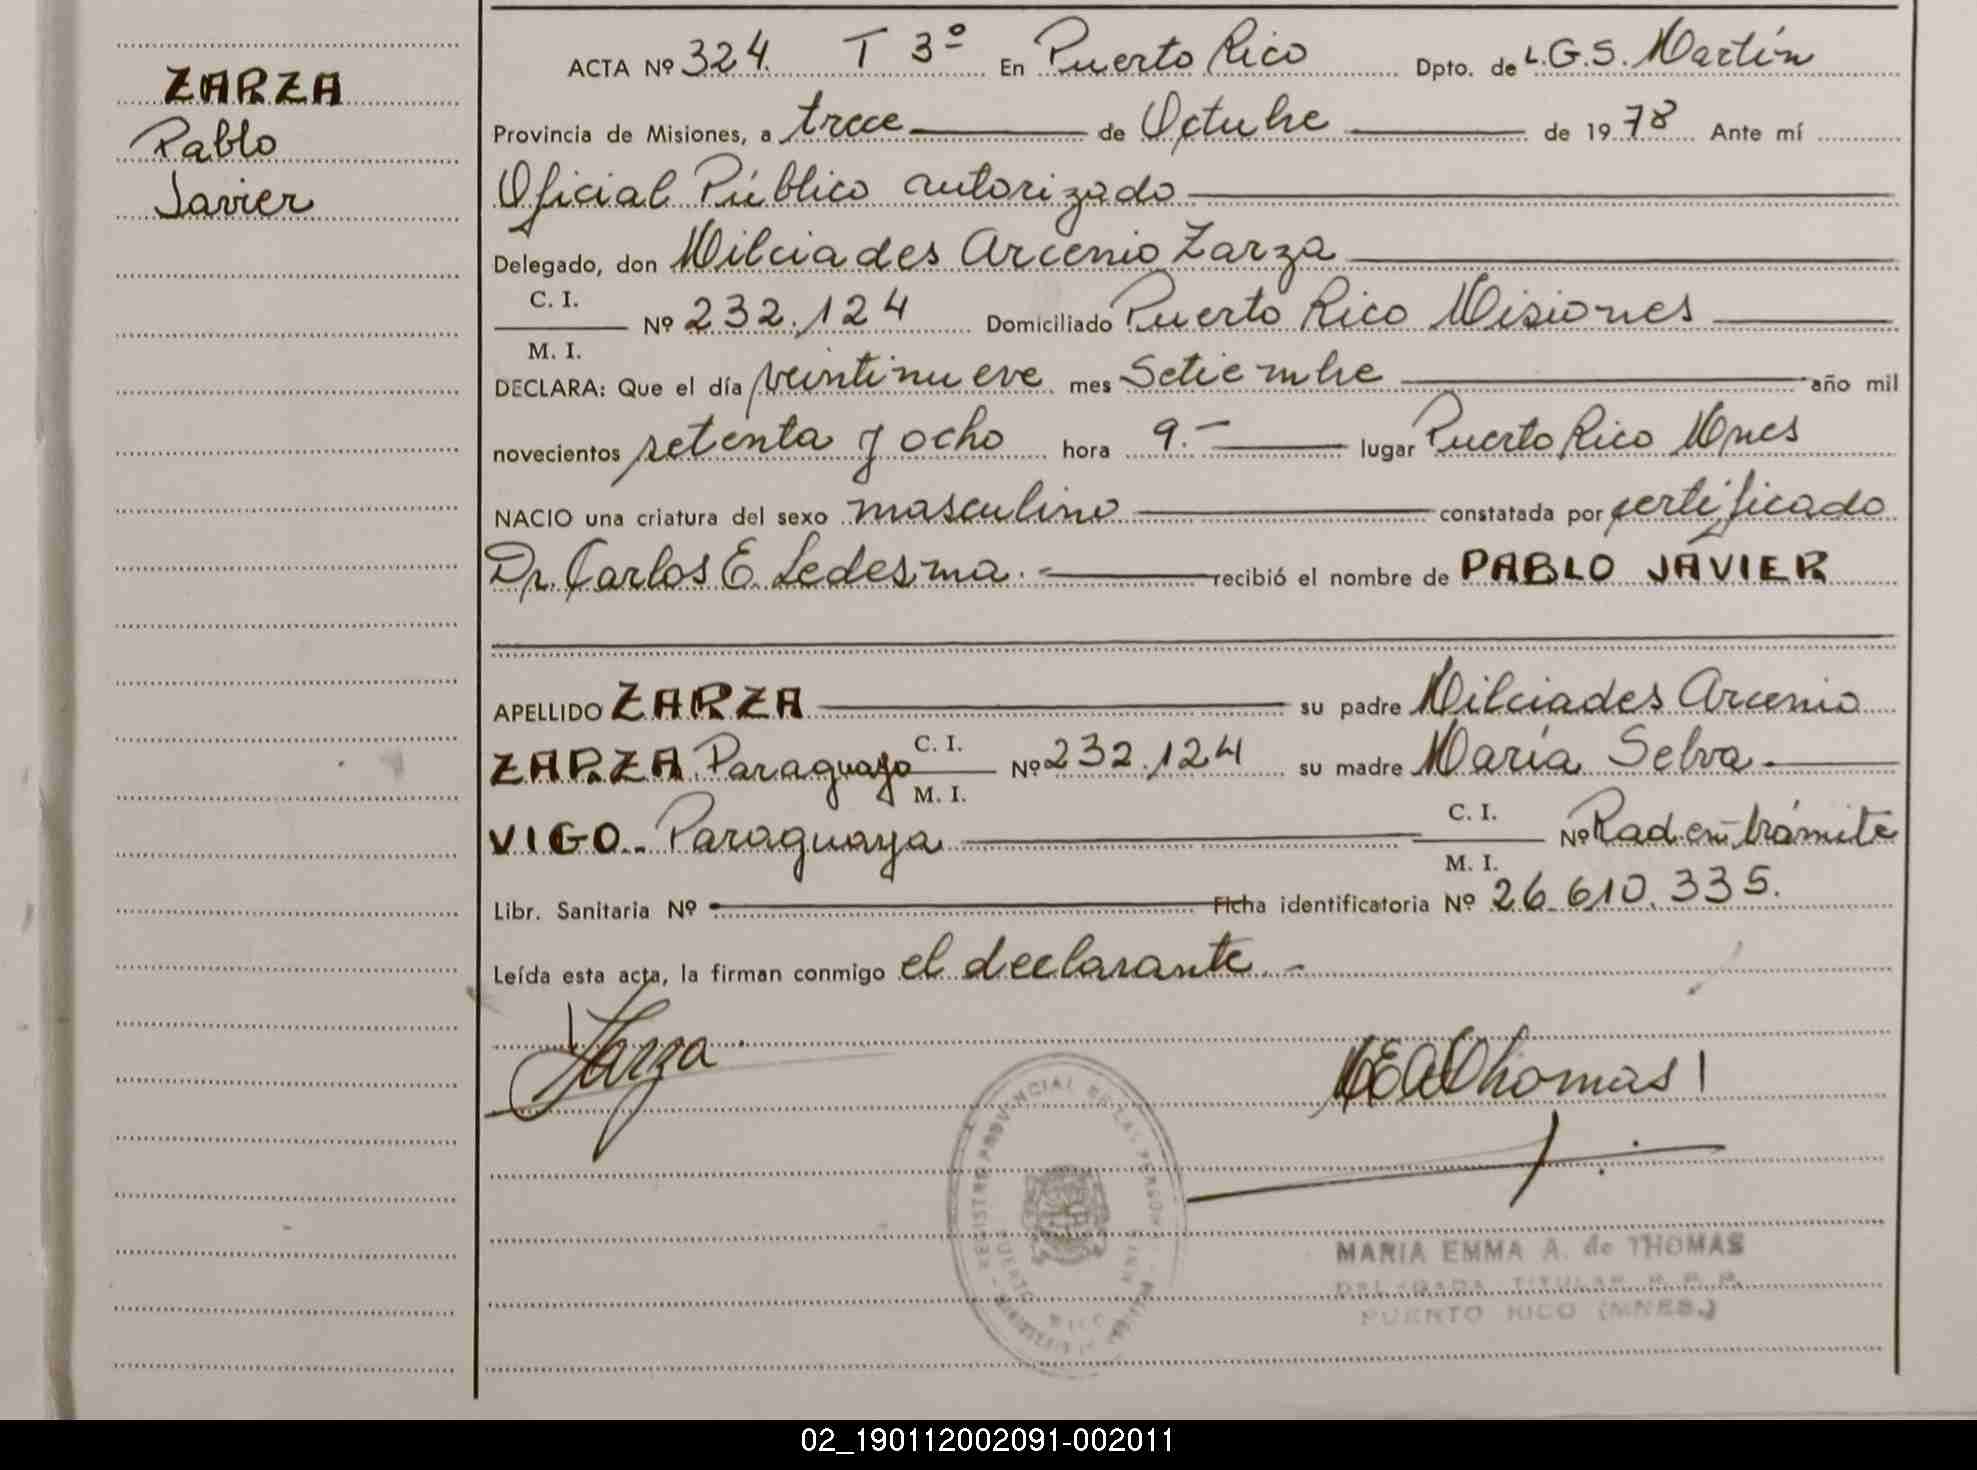 ZARZA
Pablo
Javier
ACTA Nº 324 T 3º En Puerto Rico Dpto. de L.G.S. Martín
Provincia de Misiones, a trece de Octubre de 1978 Ante mí
Oficial Público autorizado
Delegado, don Milciades Arcenio Zarza
C. I.
Nº 232.124 Domiciliado Puerto Rico Misiones
M. I.
DECLARA: Que el día veintinueve mes Setiembre año mil
novecientos setenta y ocho hora 9.- lugar Puerto Rico Mnes
NACIO una criatura del sexo masculino constatada por certificado
Dr. Carlos E. Ledesma.- recibió el nombre de PABLO JAVIER
APELLIDO ZARZA su padre Milciades Arcenio
ZARZA Paraguayo C. I. Nº 232.124 su madre María Selva
M. I.
VIGO.. Paraguaya C. I. Nº Rad en trámite
M. I.
Libr. Sanitaria Nº Ficha identificatoria Nº 26.610.335.
Leída esta acta, la firman conmigo el declarante.-
Zarza
MEAThomas
REGISTRO PROVINCIAL DE LAS PERSONAS
PUERTO RICO
MARIA EMMA A. de THOMAS
DELEGADA TITULAR R. P. P.
PUERTO RICO (MNES.)
02_190112002091-002011